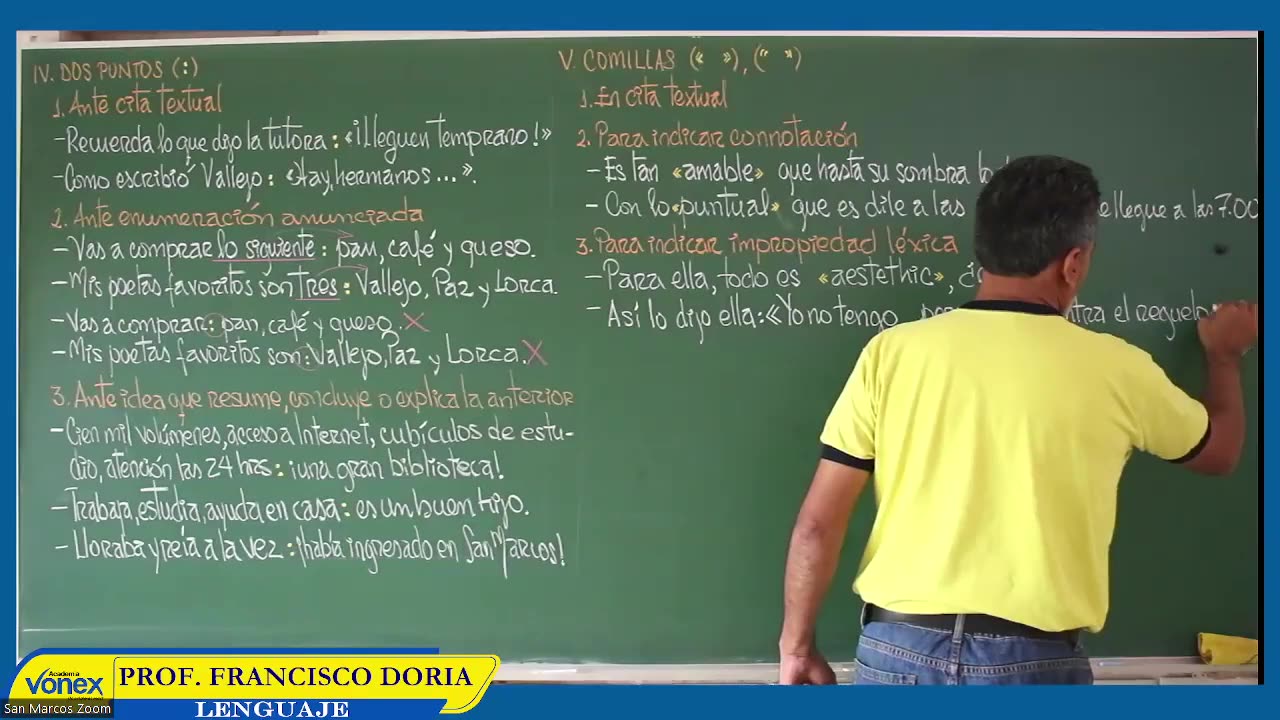 IV. DOS PUNTOS (:)
1. Ante cita textual
- Recuerda lo que dijo la tutora: «¡Lleguen temprano!»
- Como escribió Vallejo: «Hay, hermanos...».
2. Ante enumeración anunciada
- Vas a comprar lo siguiente: pan, café y queso.
- Mis poetas favoritos son tres: Vallejo, Paz y Lorca.
- Vas a comprar: pan, café y queso. X
- Mis poetas favoritos son: Vallejo, Paz y Lorca. X
3. Ante idea que resume, concluye o explica la anterior
- Cien mil volúmenes, acceso a Internet, cubículos de estu-
dio, atención las 24 hrs: ¡una gran biblioteca!
- Trabaja, estudia, ayuda en casa: es un buen hijo.
- Lloraba y reía a la vez: ¡había ingresado en San Marcos!
V. COMILLAS (« »), (“ ”)
1. En cita textual
2. Para indicar connotación
- Es tan «amable» que hasta su sombra
- Con lo «puntual» que es dile a las llegue a las 7.00
3. Para indicar impropiedad léxica
- Para ella, todo es «aestethic»,
- Así lo dijo ella: «Yo no tengo el reguelo
Academia
vonex
San Marcos Zoom
PROF. FRANCISCO DORIA
LENGUAJE